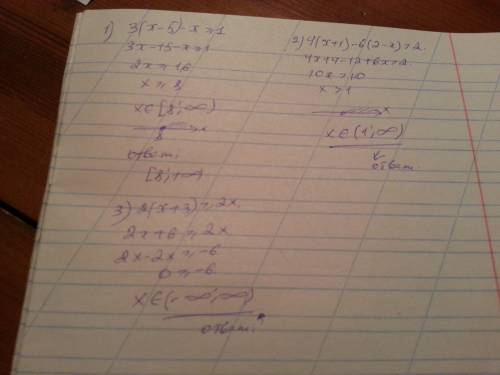 1) 3(x-5)-x ≥ 1
3x-15-x ≥ 1
2x ≥ 16
x ≥ 8
x∈[8; ∞)
8 x
ответ:
[8; +∞
2) 4(x+1)-6(2-x)>2
4x+4-12+6x>2
10x>10
x>1
x
x∈(1; ∞)
ответ
3) 2(x+3) ≥ 2x
2x+6 ≥ 2x
2x-2x ≥ -6
0 ≥ -6
x∈(-∞; ∞)
ответ